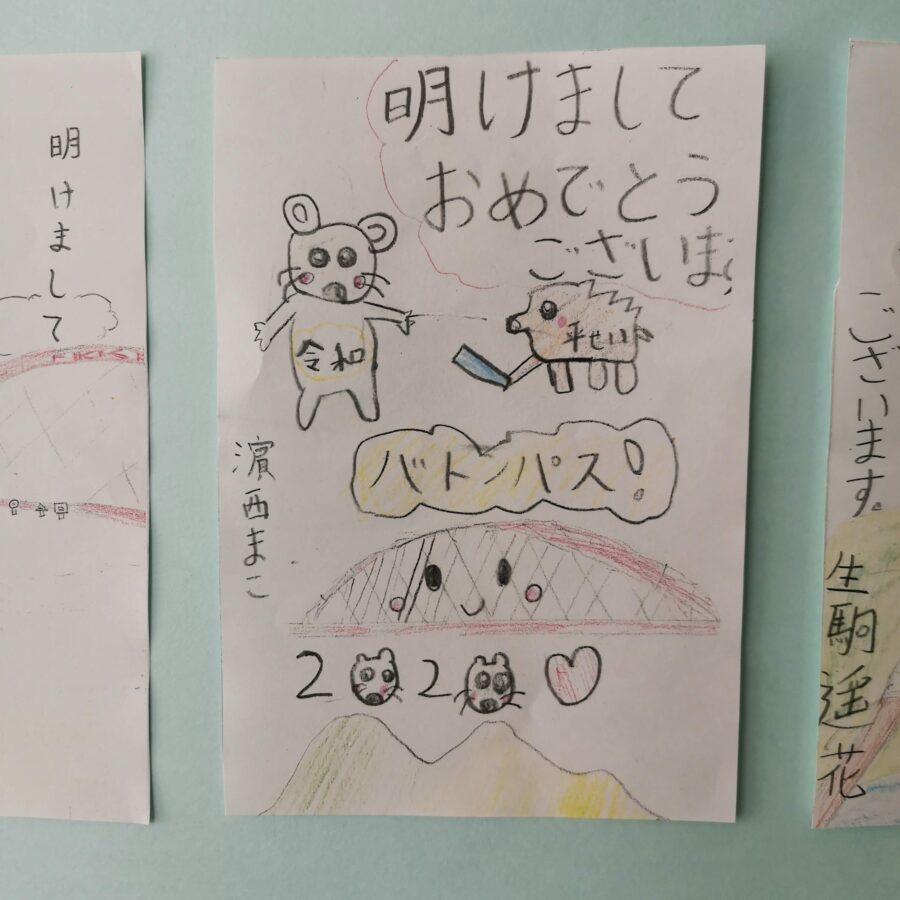 明けまして
明けまして
おめでとう
ございま
令和
平せい
バトンパス!
濵西まこ
2 2
ございます。
生駒遥花